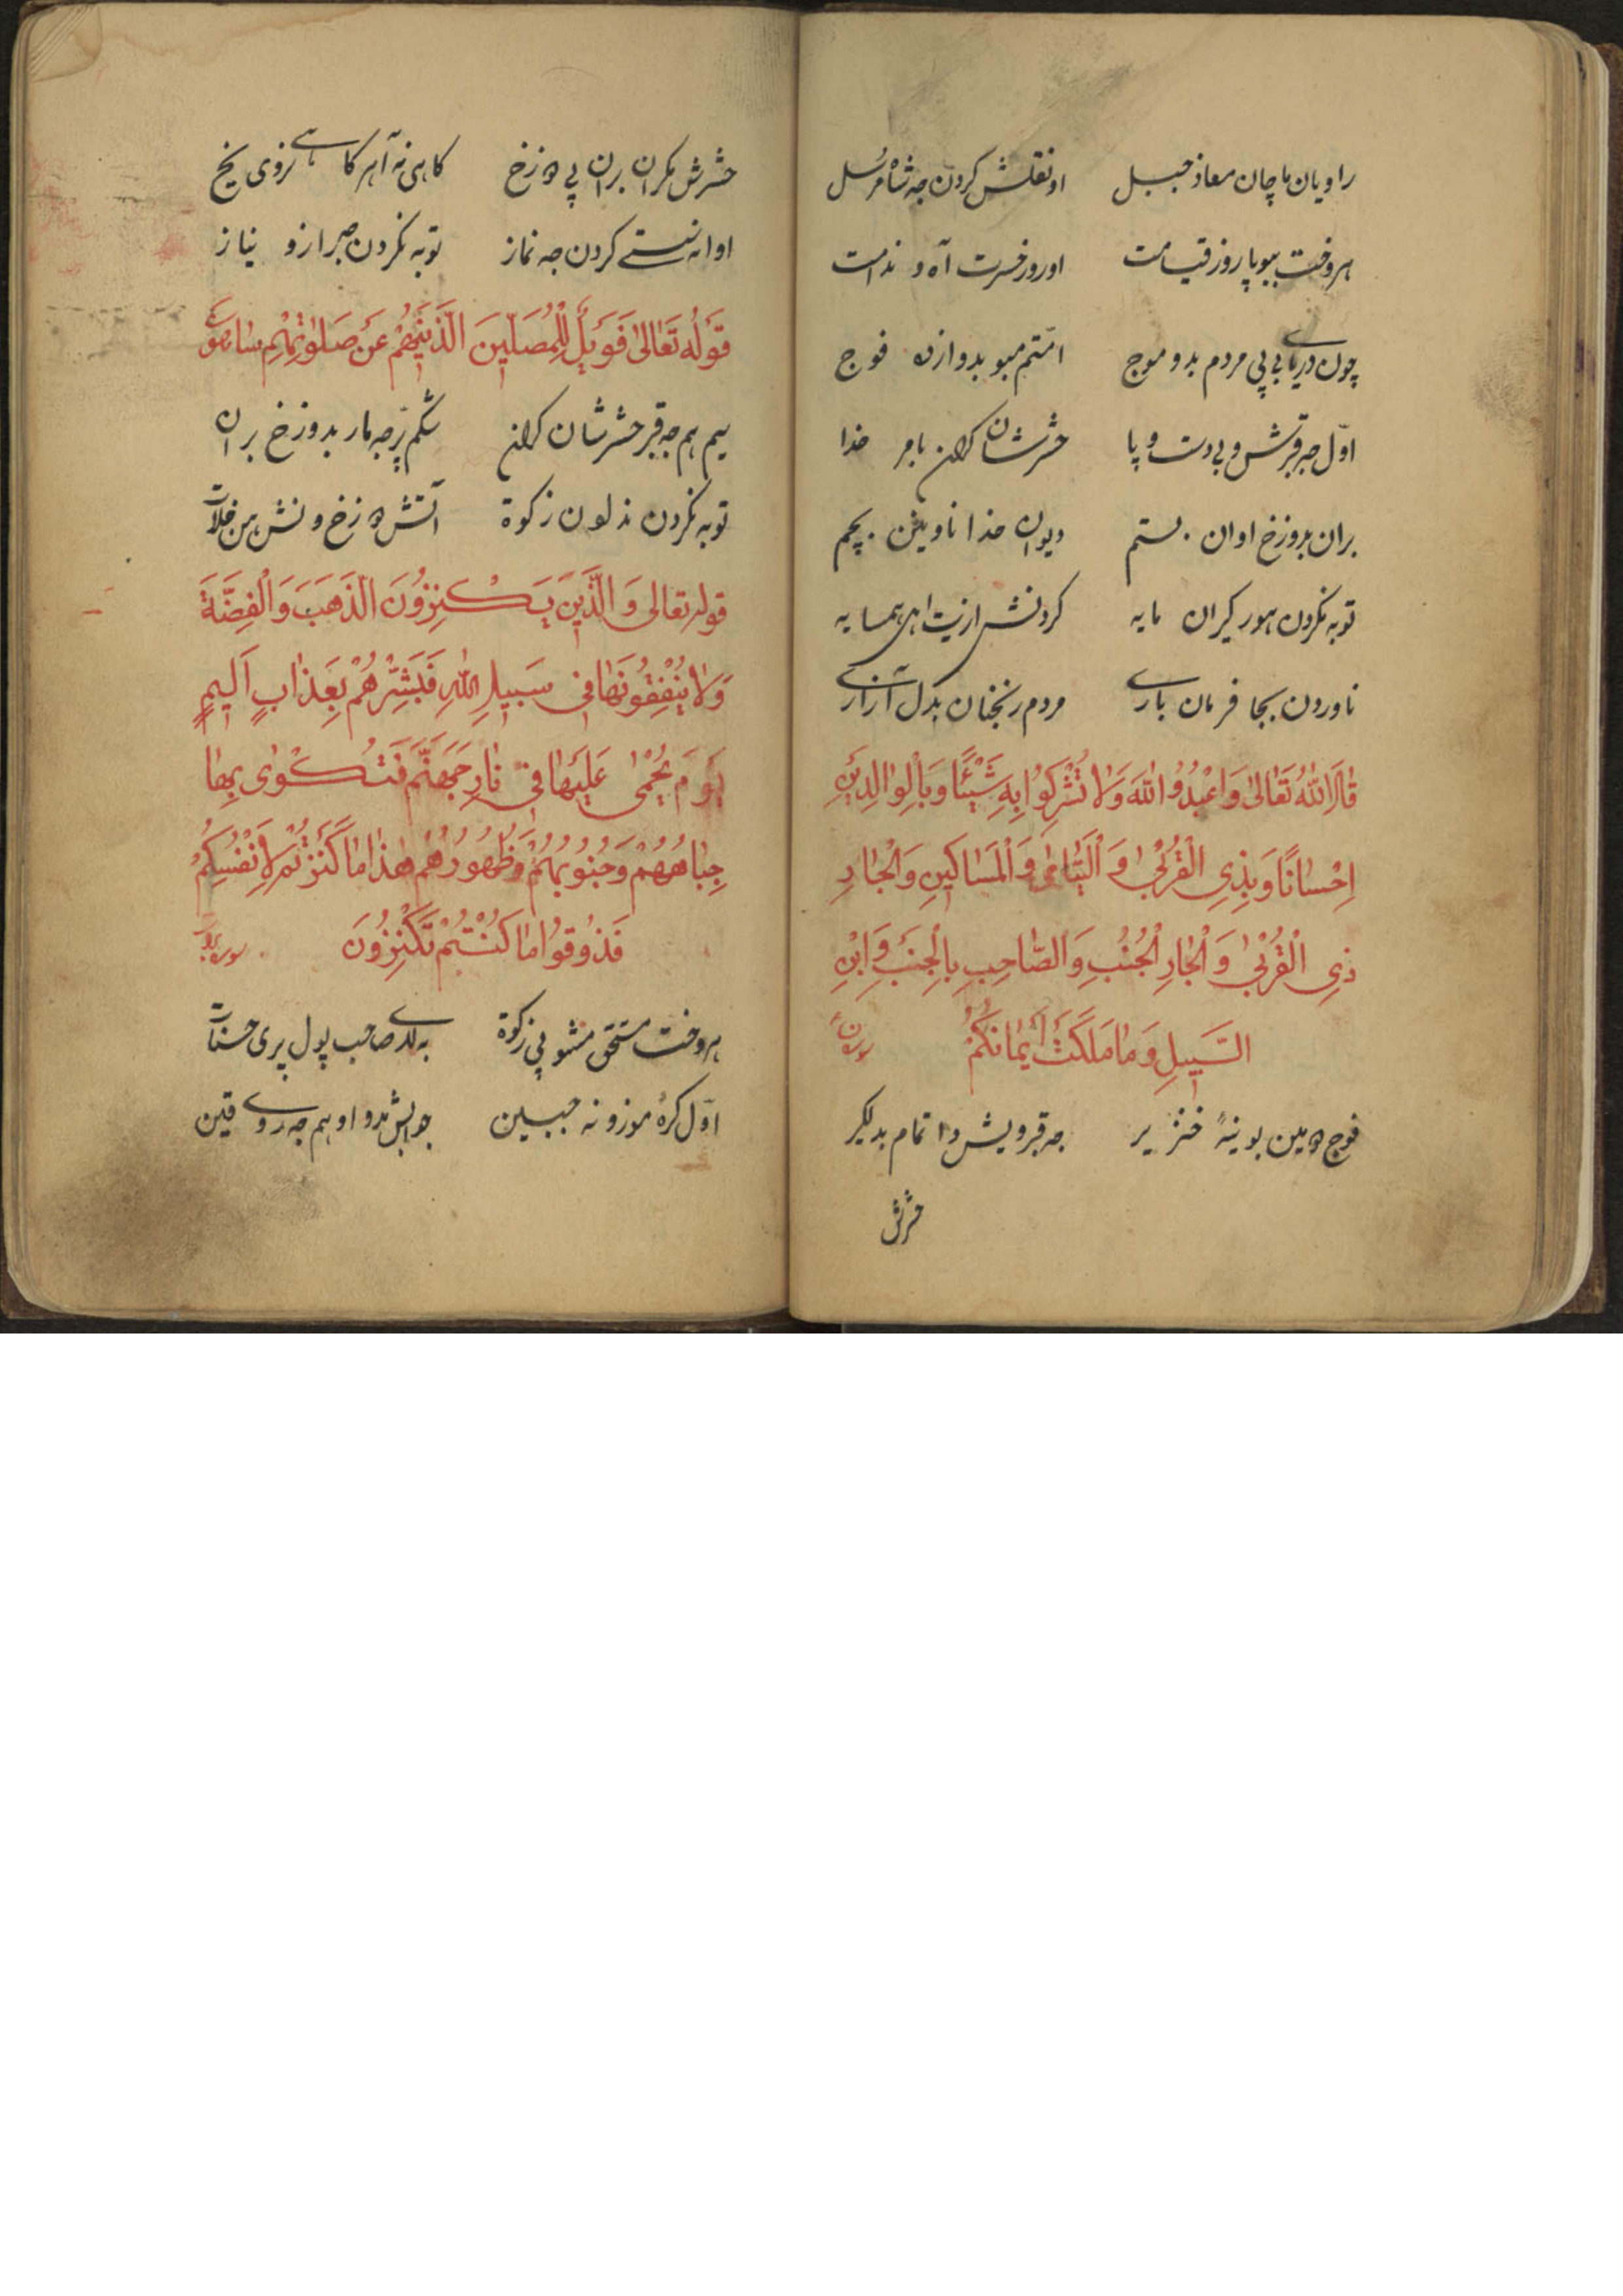 راویان ماچان معاذ جبل اونقلش کردن جه شاه مرسل
هر وخت ببو پا روز قیامت او روز حسرت آه و ندامت
چون دریای بی پی مردم بدو موج امتم مبو بدوازده فوج
اول جه قبرش و بی دست و پا حشرشان کران بامر خدا
بران بدوزخ اوان بستم دیوان خدا ناویش بچم
توبه نکردن هورکیران مایه کردنش اذیت اهل همسایه
ناوردن بجا فرمان باری مردم رنجنان بدل آزاری
قال الله تعالی وَاعْبُدُوا اللهَ وَلَا تُشْرِکُوا بِهِ شَیْئًا وَبِالْوَالِدَیْنِ
اِحْسَانًا وَبِذِی الْقُرْبٰی وَالْیَتَامٰی وَالْمَسَاکِینِ وَالْجَارِ
ذِی الْقُرْبٰی وَالْجَارِ الْجُنُبِ وَالصَّاحِبِ بِالْجَنْبِ وَابْنِ
السَّبِیلِ وَمَا مَلَکَتْ اَیْمَانُکُمْ
فوج دومین بوینهٔ خنزیر جه قبر ویش دا تمام بدلگیر
حشرش
حشرش مکران بران پی دوزخ کاهی نه آهر کاهی نروی یخ
اوانه سستی کردن جه نماز توبه نکردن جبر از و نیاز
قوله تعالی فَوَیْلٌ لِلْمُصَلِّینَ الَّذِینَ هُمْ عَنْ صَلٰوتِهِمْ سَاهُونَ
سیم هم جه قبر حشرشان کران شکم پر جه مار بدوزخ بران
توبه نکردن ندلون زکوة آتش دوزخ ونش من خلات
قوله تعالی وَالَّذِینَ یَکْنِزُونَ الذَّهَبَ وَالْفِضَّةَ
وَلَا یُنْفِقُونَهَا فِی سَبِیلِ اللهِ فَبَشِّرْهُمْ بِعَذَابٍ اَلِیمٍ
یَوْمَ یُحْمٰی عَلَیْهَا فِی نَارِ جَهَنَّمَ فَتُکْوٰی بِهَا
جِبَاهُهُمْ وَجُنُوبُهُمْ وَظُهُورُهُمْ هٰذَا مَا کَنَزْتُمْ لِاَنْفُسِکُمْ
فَذُوقُوا مَا کُنْتُمْ تَکْنِزُونَ
هر وخت مستحق مشو پی زکوة صاحب پول پری حسنات
اول کره موزو نه جبین جوابش مدو اوهم جه روی قین